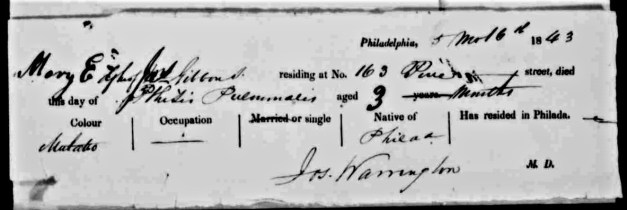 Philadelphia, 5 Mo 16th 1843
Mary E Gibbons residing at No. 163 Pine street, died
this day of Phthisis Pulmonalis aged 3 years Months
Colour Occupation Married or single Native of Has resided in Philada.
Mulatto — Philada
Jos. Warrington M. D.